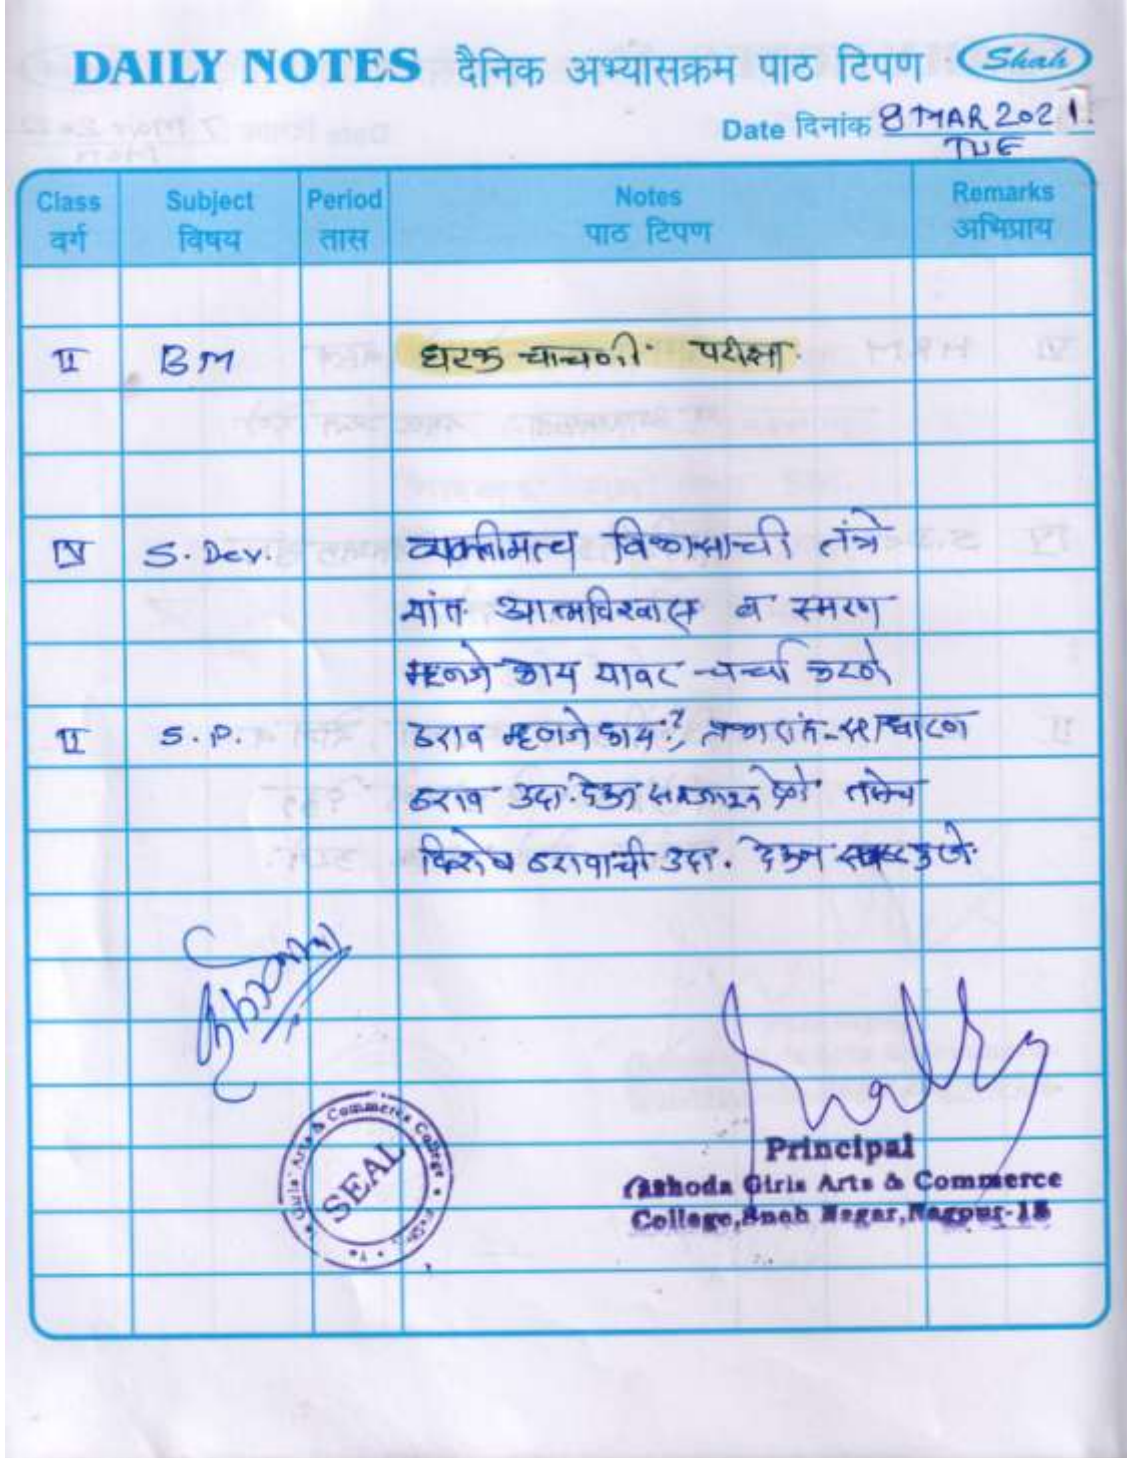 DAILY NOTES दैनिक अभ्यासक्रम पाठ टिपण Shah
Date दिनांक 8 MAR 2021
TUE
Class Subject Period Notes Remarks
वर्ग विषय तास पाठ टिपण अभिप्राय
II BM घटक चाचणी परीक्षा.
IV S. Dev. व्यक्तीमत्व विकासाची तंत्रे
यांत आत्मविश्वास व स्मरण
म्हणजे काय यावर चर्चा करणे
II S.P. ठराव म्हणजे काय?, साधारण
ठराव उदा. देऊन समजावून देणे तसेच
विशेष ठरावाची उदा. देऊन स्पष्ट
Girls' Arts & Commerce College
SEAL
Principal
Yashoda Girls Arts & Commerce
College, Sneh Nagar, Nagpur-15